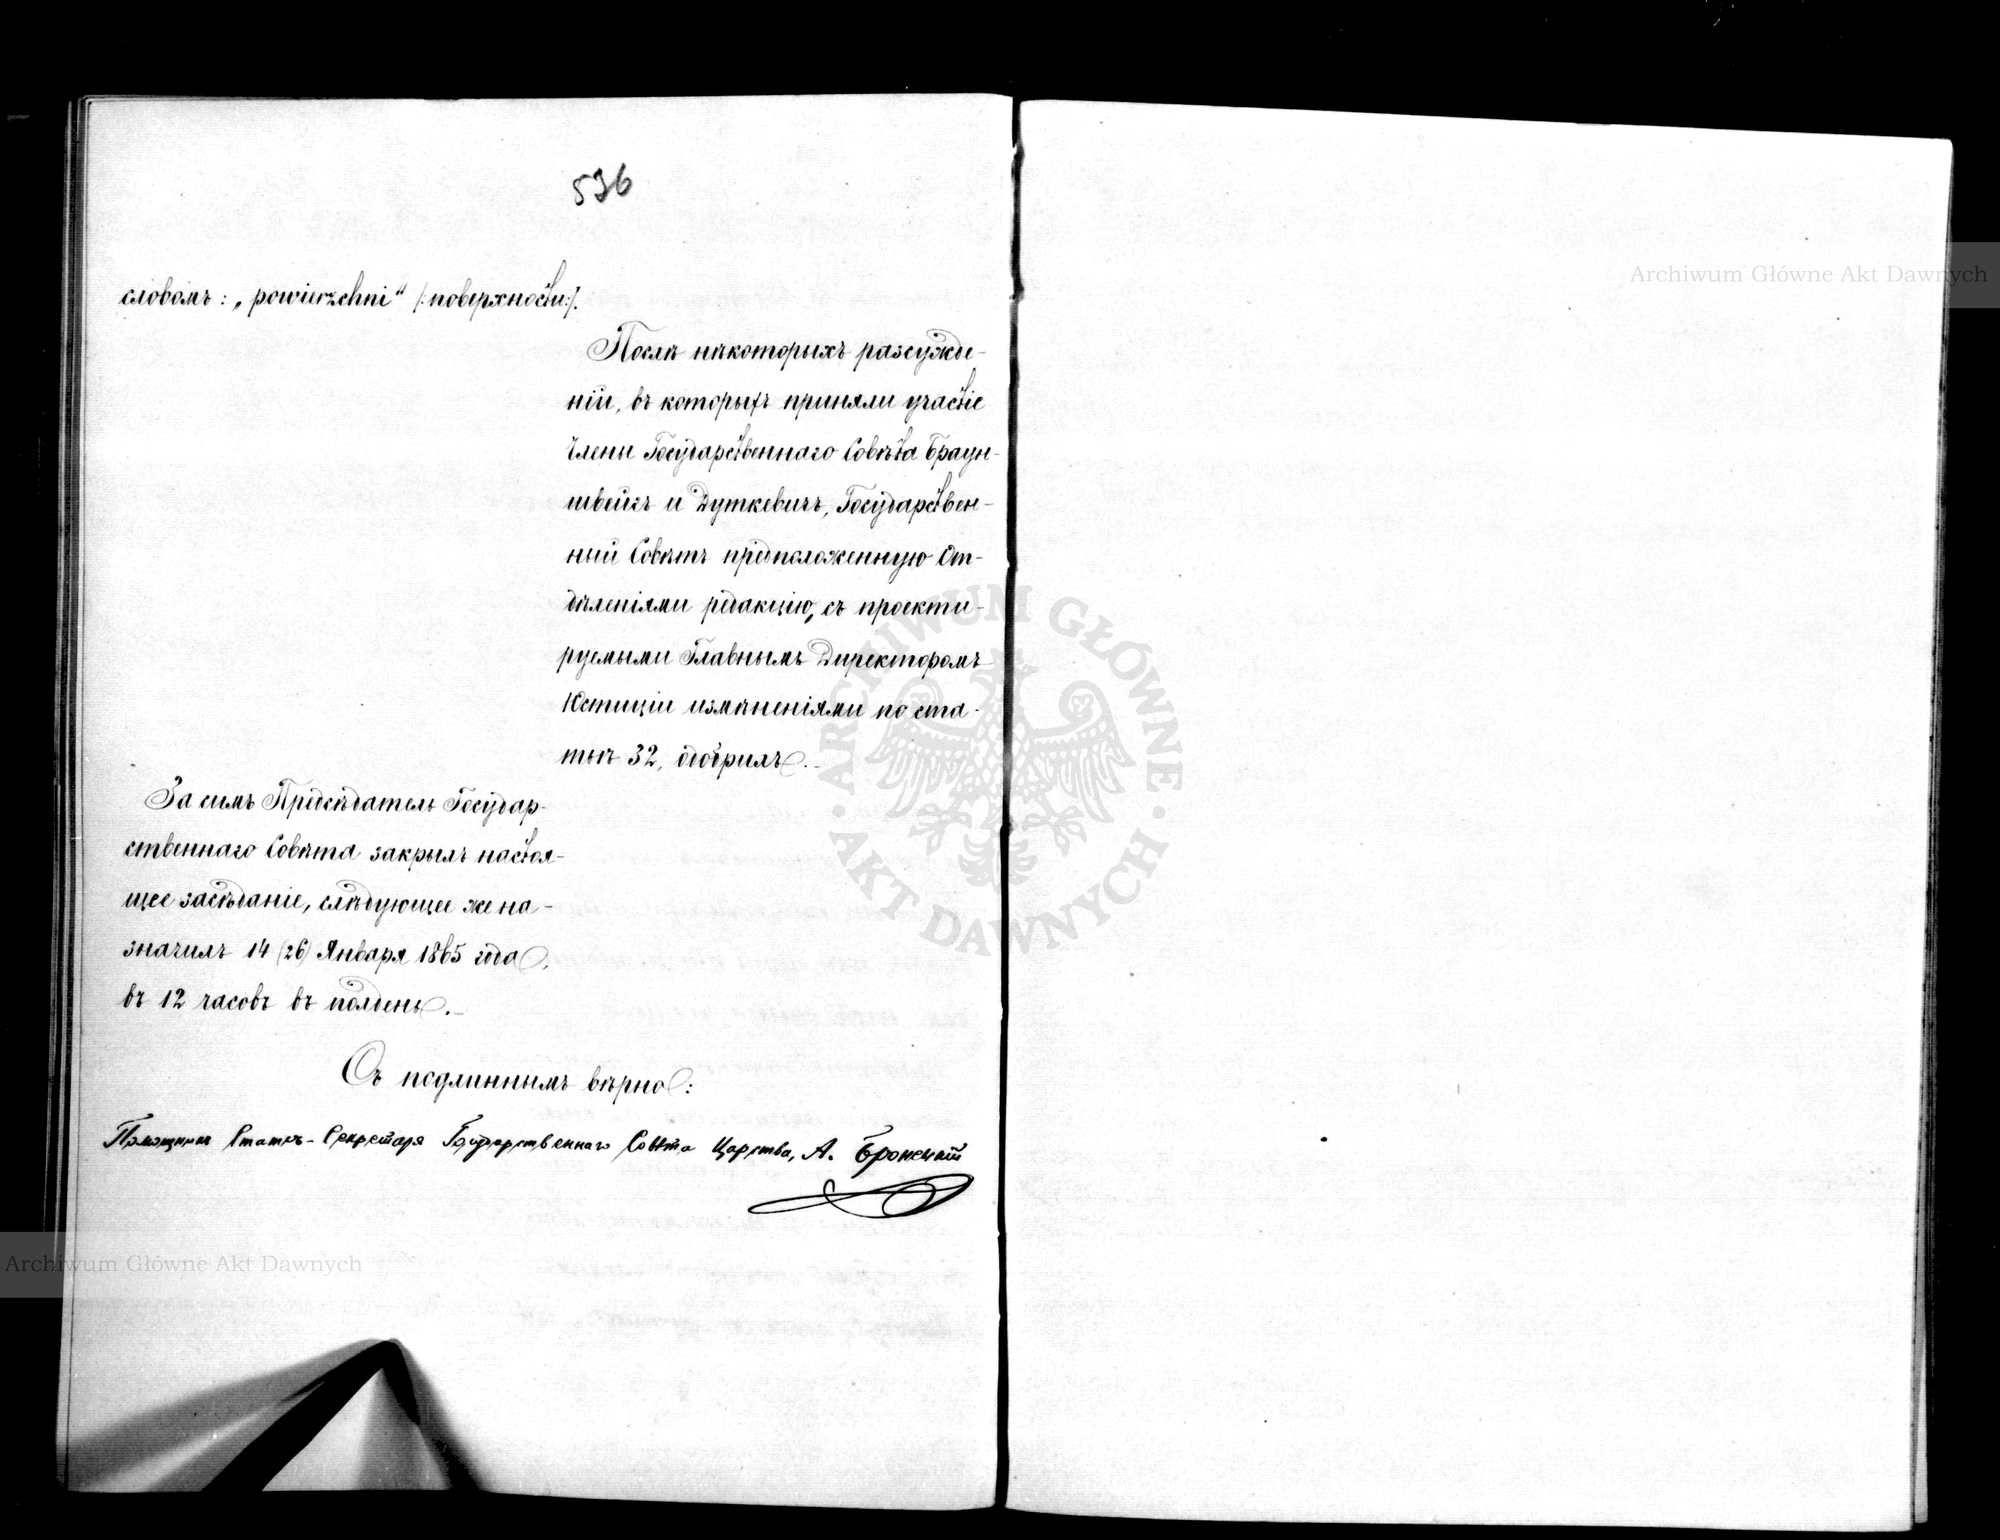 536
словомъ: „powierzchni" /:поверхности:/.
Послѣ нѣкоторыхъ разсужде-
ній, въ которыхъ приняли участіе
Члены Государственнаго Совѣта Браун-
швейгъ и Дуткевичъ, Государствен-
ный Совѣтъ предположенную От-
дѣленіями редакцію, съ проекти-
руемыми Главнымъ Директоромъ
Юстиціи измѣненіями по ста-
тьѣ 32, одобрилъ.
За симъ Предсѣдатель Государ-
ственнаго Совѣта закрылъ настоя-
щее засѣданіе, слѣдующее же на-
значилъ 14 (26) Января 1865 года,
въ 12 часовъ въ полдень.
Съ подлиннымъ вѣрно:
Помощникъ Статсъ-Секретаря Государственнаго Совѣта Царства, А. Бронецкій
Archiwum Główne Akt Dawnych
ARCHIWUM GŁÓWNE
AKT DAWNYCH
Archiwum Główne Akt Dawnych